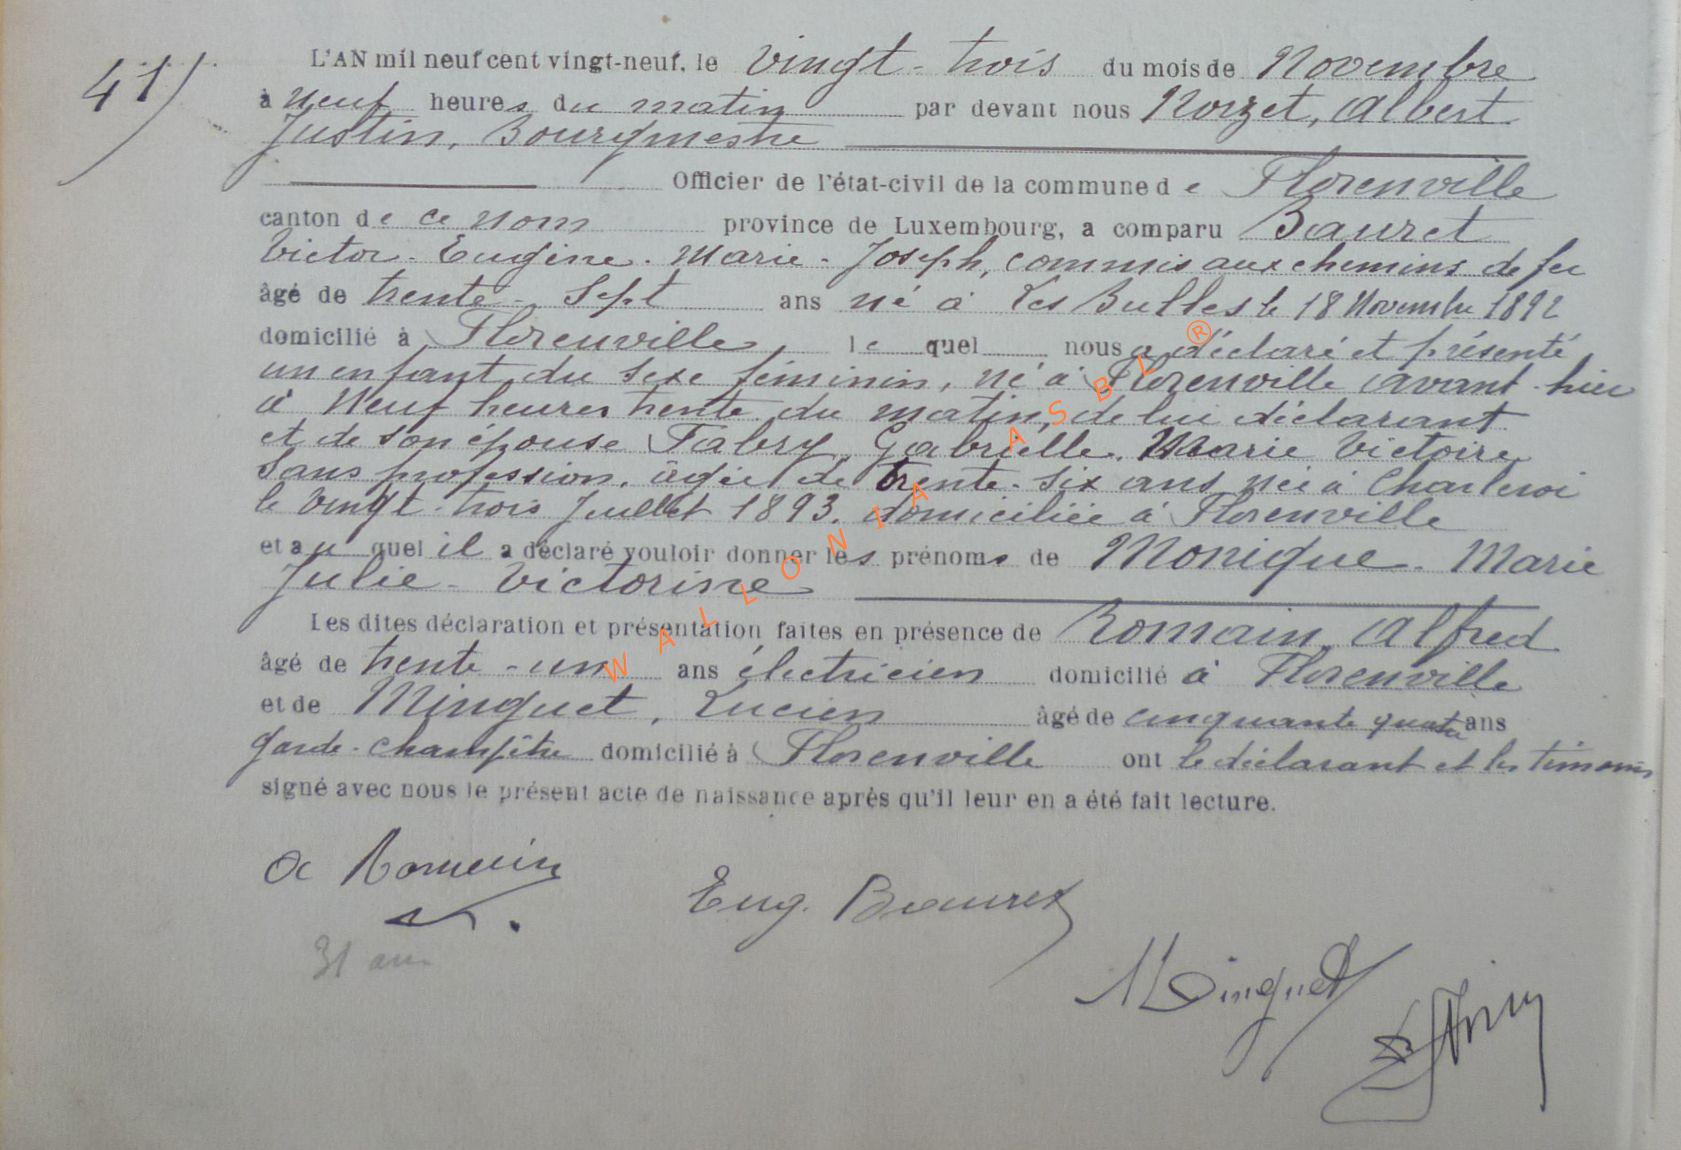 41)
L'AN mil neuf cent vingt-neuf, le vingt-trois du mois de Novembre
à neuf heures du matin par devant nous Norzet, Albert
Justin, Bourgmestre
Officier de l'état-civil de la commune de Florenville
canton de ce nom province de Luxembourg, a comparu Bauret
Victor-Eugène-Marie-Joseph, commis aux chemins de fer
âgé de trente-sept ans né à Les Bulles le 18 Novembre 1892
domicilié à Florenville, lequel nous a déclaré et présenté
un enfant du sexe féminin, né à Florenville avant-hier
à neuf heures trente du matin, de lui déclarant
et de son épouse Fabry, Gabrielle, Marie Victoire
sans profession, âgée de trente-six ans née à Charleroi
le vingt-trois Juillet 1893, domiciliée à Florenville
et au quel il a déclaré vouloir donner les prénoms de Monique-Marie
Julie-Victorine
Les dites déclaration et présentation faites en présence de Romain, Alfred
âgé de trente-un ans électricien domicilié à Florenville
et de Minguet, Lucien âgé de cinquante quatre ans
garde-champêtre domicilié à Florenville ont le déclarant et les témoins
signé avec nous le présent acte de naissance après qu'il leur en a été fait lecture.
A Romain
Eug. Bauret
31 ans
Minguet
WALLONIA ASBL ®